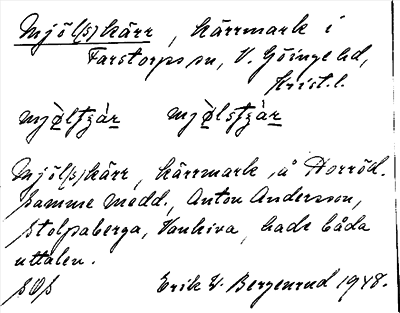 Mjöl(s)kärr, kärrmark i
Farstorps sn, V. Göinge hd,
Krist. l.
mjø̀lʃʒàr mjø̀lsʃʒàr
Mjöl(s)kärr, kärrmark, å Horröd.
Samme medd., Anton Andersson,
Stolpaberga, Vankiva, hade båda
uttalen.
SOS Erik W. Bergenrud 1948.